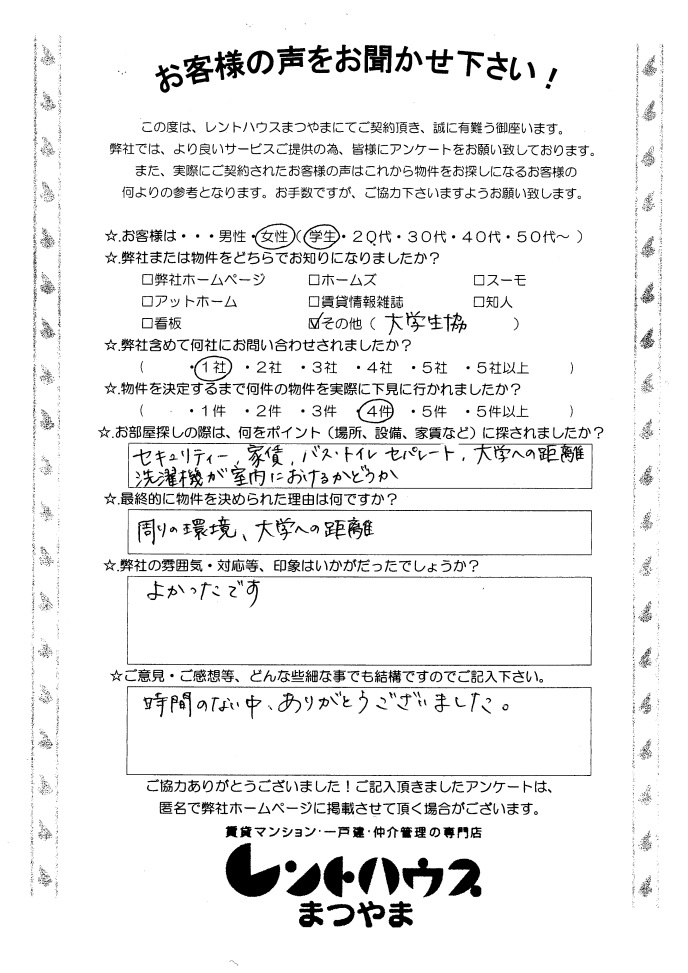 お客様の声をお聞かせ下さい！
この度は、レントハウスまつやまにてご契約頂き、誠に有難う御座います。
弊社では、より良いサービスご提供の為、皆様にアンケートをお願い致しております。
また、実際にご契約されたお客様の声はこれから物件をお探しになるお客様の
何よりの参考となります。お手数ですが、ご協力下さいますようお願い致します。
☆.お客様は・・・男性・女性（学生・20代・30代・40代・50代～ ）
☆.弊社または物件をどちらでお知りになりましたか？
□弊社ホームページ □ホームズ □スーモ
□アットホーム □賃貸情報雑誌 □知人
□看板 ☑その他（ 大学生協 ）
☆.弊社含めて何社にお問い合わせされましたか？
（ ・1社 ・2社 ・3社 ・4社 ・5社 ・5社以上 ）
☆.物件を決定するまで何件の物件を実際に下見に行かれましたか？
（ ・1件 ・2件 ・3件 ・4件 ・5件 ・5件以上 ）
☆.お部屋探しの際は、何をポイント（場所、設備、家賃など）に探されましたか？
セキュリティー, 家賃, バス・トイレ セパレート, 大学への距離
洗濯機が室内におけるかどうか
☆.最終的に物件を決められた理由は何ですか？
周りの環境、大学への距離
☆.弊社の雰囲気・対応等、印象はいかがだったでしょうか？
よかったです
☆ご意見・ご感想等、どんな些細な事でも結構ですのでご記入下さい。
時間のない中、ありがとうございました。
ご協力ありがとうございました！ご記入頂きましたアンケートは、
匿名で弊社ホームページに掲載させて頂く場合がございます。
賃貸マンション・一戸建・仲介管理の専門店
レントハウス
まつやま